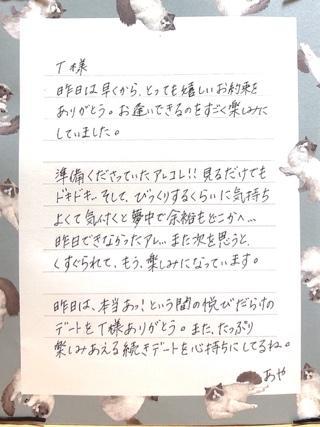 T様
昨日は早くから、とっても嬉しいお約束を
ありがとう。お逢いできるのをすごく楽しみに
していました。
準備くださっていたアレコレ!! 見るだけでも
ドキドキ。そして、びっくりするくらいに気持ち
よくて気付くと夢中で余裕もどこかへ…
昨日できなかったアレ…また次を思うと、
くすぐられて、もう、楽しみになっています。
昨日は、本当あっ!という間の悦びだらけの
デートをT様ありがとう。また、たっぷり
楽しみあえる続きデートを心待ちにしてるね。
あや